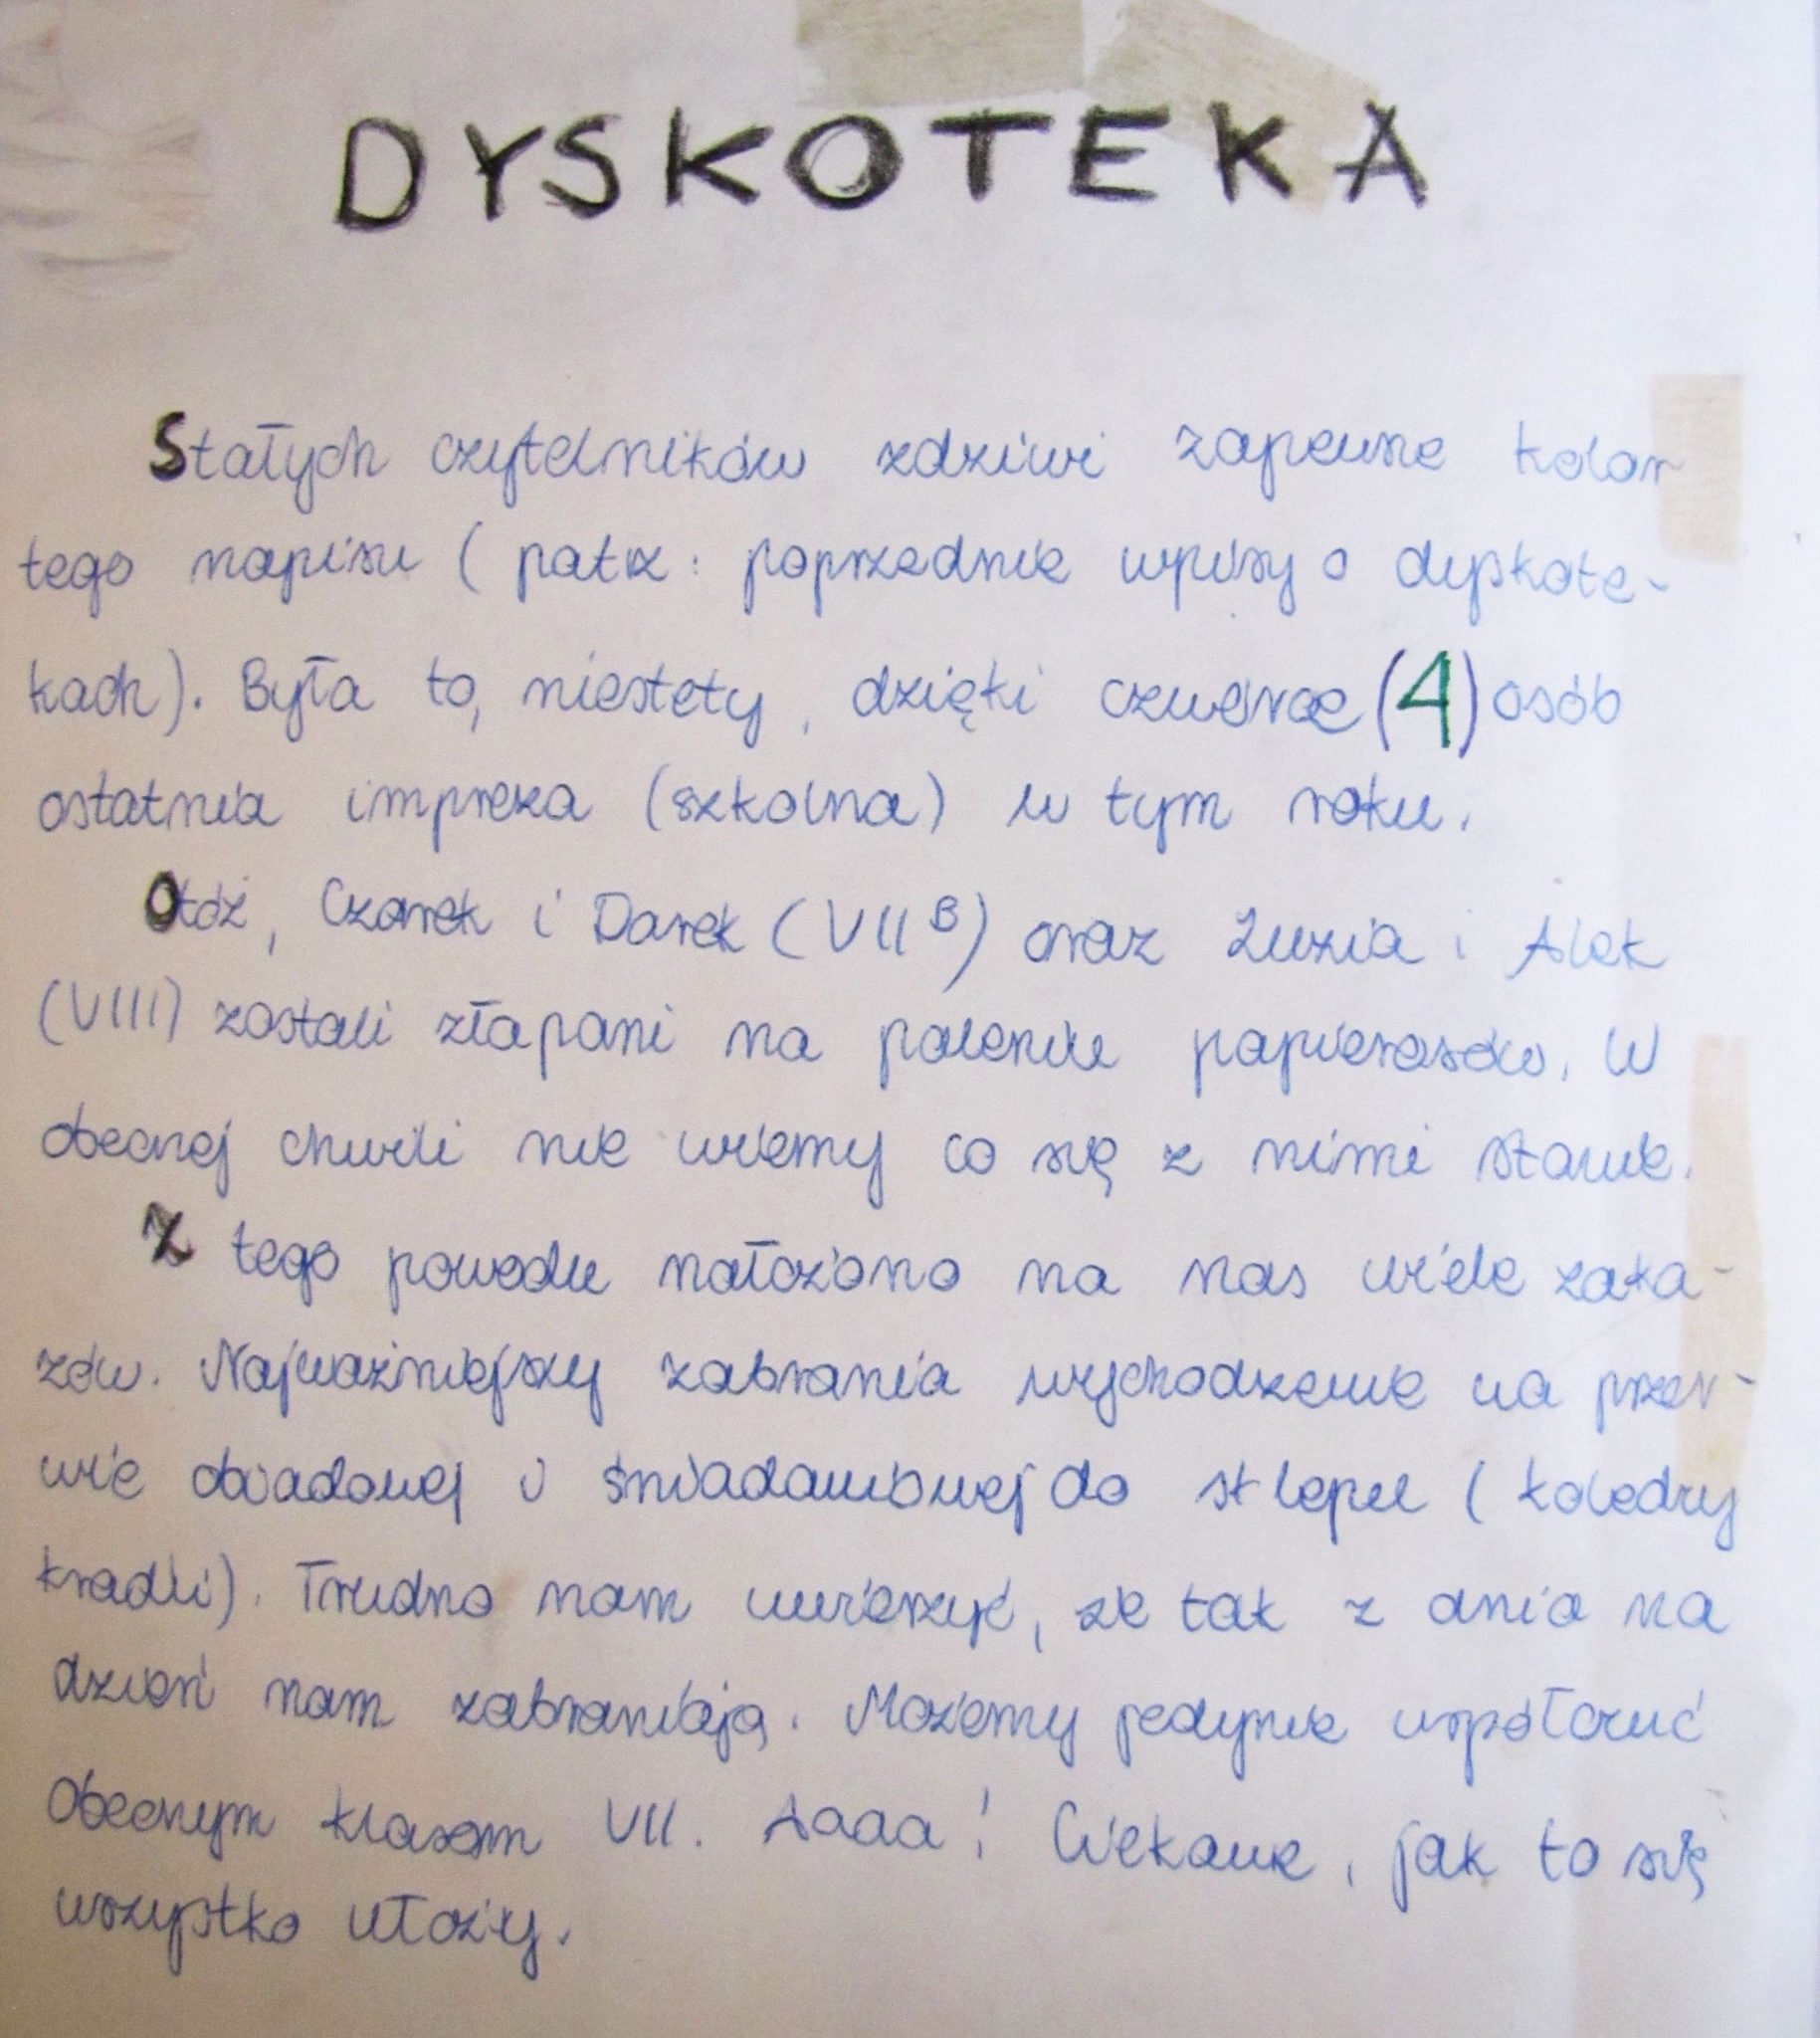 DYSKOTEKA
Stałych czytelników zdziwi zapewne kolor
tego napisu (patrz: poprzednie wpisy o dyskote-
kach). Była to, niestety, dzięki czwórce (4) osób
ostatnia impreza (szkolna) w tym roku.
Otóż, Czarek i Darek (VII B) oraz Luzia i Alek
(VIII) zostali złapani na paleniu papierosów. W
obecnej chwili nie wiemy co się z nimi stanie.
Z tego powodu nałożono na nas wiele zaka-
zów. Najważniejszy zabrania wychodzenie na przer-
wie obiadowej i śniadaniowej do sklepu (koledzy
kradli). Trudno nam uwierzyć, że tak z dnia na
dzień nam zabraniają. Możemy jedynie współczuć
Obecnym klasom VII. Aaaa! Ciekawe, jak to się
wszystko ułoży.